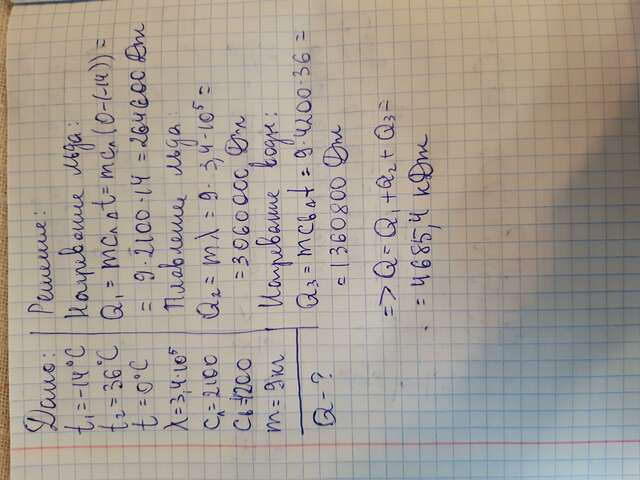 Дано:
t₁=-14°C
t₂=36°C
t=0°C
λ=3,4·10⁵
Cл=2100
Cв=4200
m=9кг
Q-?
Решение:
Нагревание льда:
Q₁=mCлΔt=mCл(0-(-14))=
=9·2100·14=264600 Дж
Плавление льда:
Q₂=mλ=9·3,4·10⁵=
=3060000 Дж
Нагревание воды:
Q₃=mCвΔt=9·4200·36=
=1360800 Дж
=>Q=Q₁+Q₂+Q₃=
=4685,4 кДж